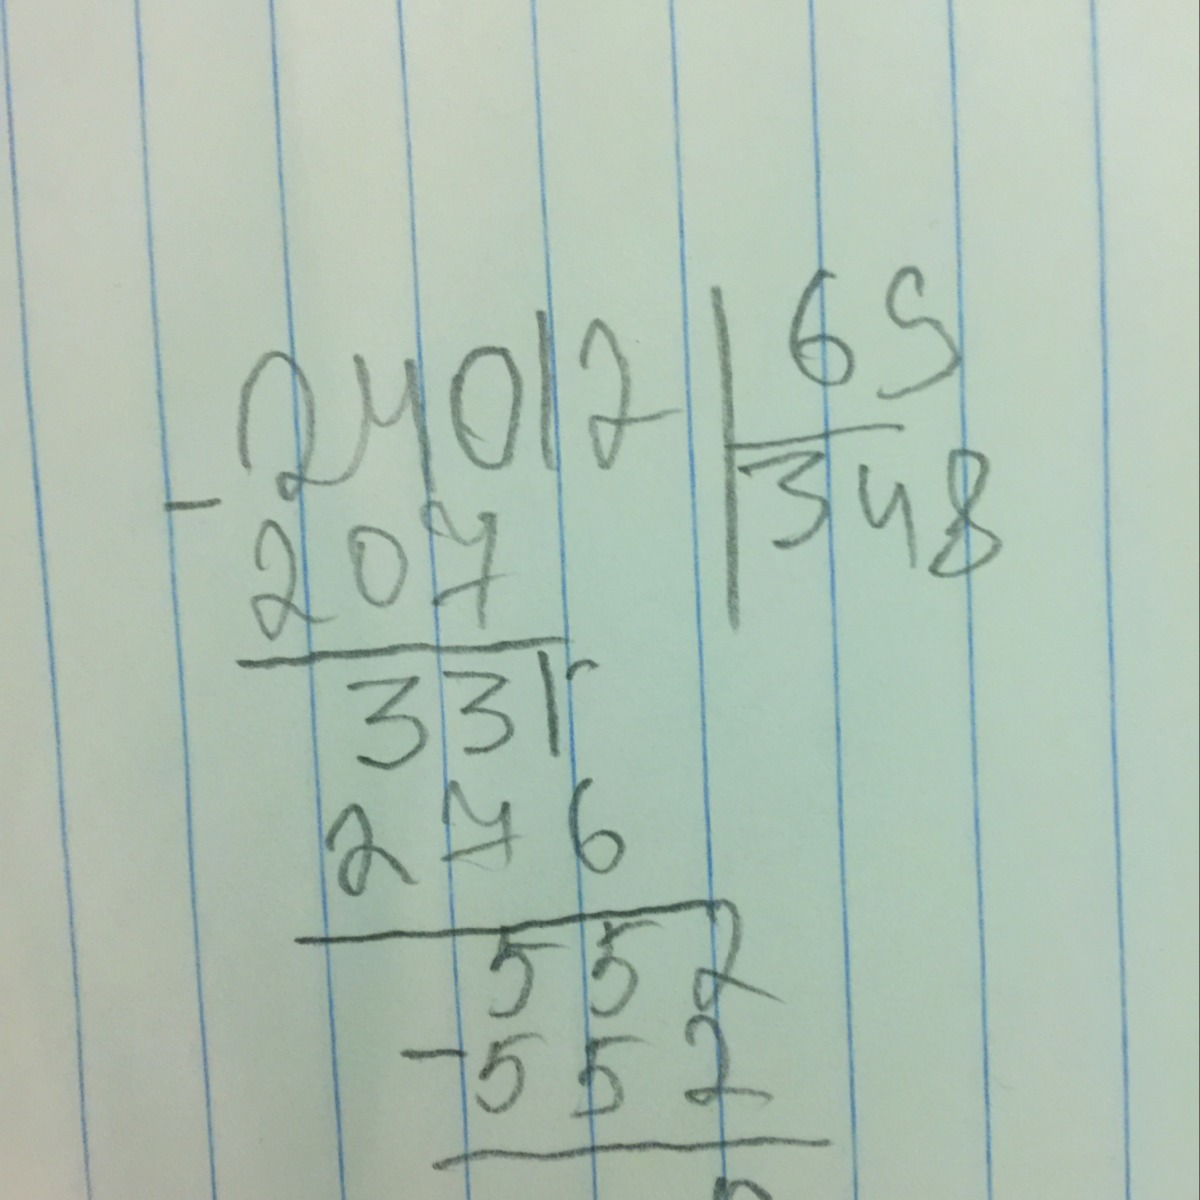 24012 | 69
- 348
207
331
276
552
- 552